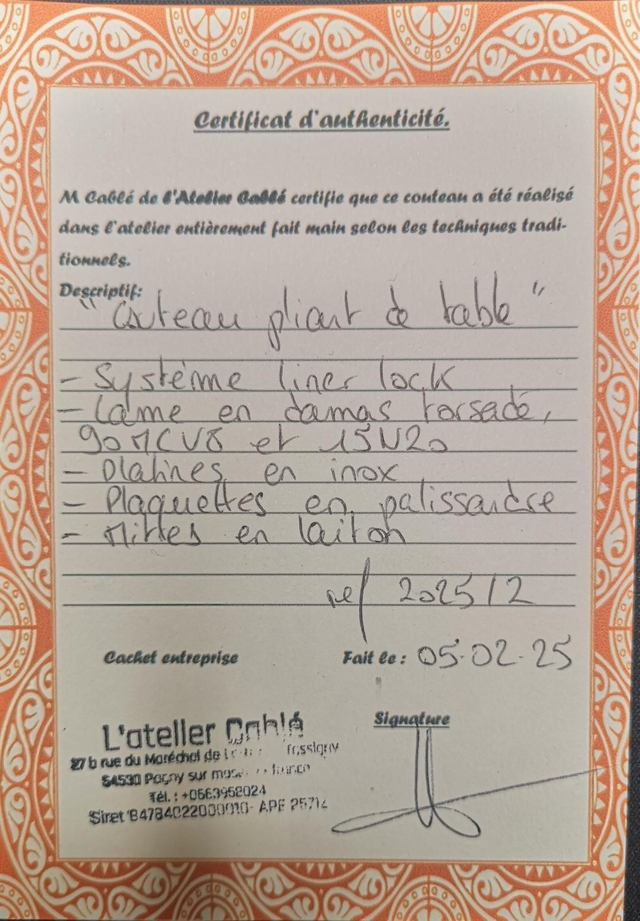 Certificat d'authenticité.
M Cablé de l'Atelier Cablé certifie que ce couteau a été réalisé
dans l'atelier entièrement fait main selon les techniques tradi-
tionnels.
Descriptif:
"Couteau pliant de table"
- Système liner lock
- Lame en damas torsadé,
90MCV8 et 15N20
- Platines en inox
- Plaquettes en palissandre
- Mitres en laiton
ref 2025/2
Cachet entreprise
Fait le : 05-02-25
L'atelier Cablé
27 b rue du Maréchal de
54530 Pagny sur
Tél. : +0663958024
Siret
Signature